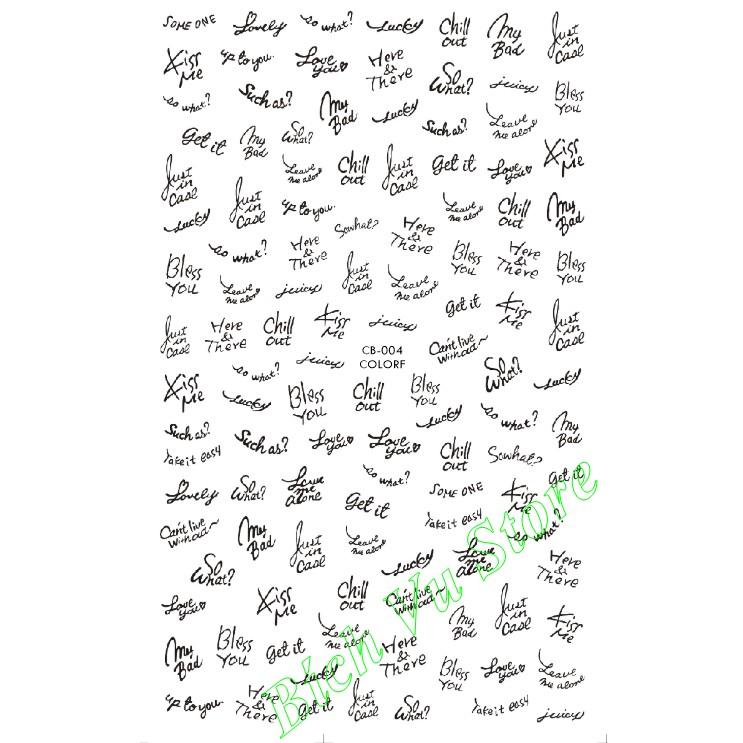 SOME ONE Lovely so what? Lucky Chill out My Bad Just in Case
Kiss Me up to you. Love you Here & There So What? juicy Bless You
so what? Such as? My Bad Lucky Such as? Leave me alone
Get it My Bad So What? Leave me alone Chill out Just in Case Get it Love you Kiss Me
Just in Case Just in Case up to you. Leave me alone Chill out My Bad
Lucky so what? Here & There So what? Here & There Bless You Here & There Bless You
Bless You Leave me alone juicy Just in Case Leave me alone Get it Kiss Me Just in Case
Just in Case Here & There Chill out Kiss Me juicy
CB-004
COLORF
Can't live without~ So What? Lucky
Kiss Me so what? juicy Lucky Bless You Chill out Bless You Lucky so what? My Bad
Such as? Such as? Love you Love you Chill out So what?
Take it easy so what? Get it
Lovely So What? Leave me alone Get it SOME ONE Kiss Me
Can't live without~ My Bad Just in Case Leave me alone Take it easy so what?
So What? Lucky Leave me alone Here & There
Love you Kiss Me Chill out Can't live without~ My Bad Just in Case Kiss Me
My Bad Bless You Get it Leave me alone Here & There Bless You Love you Leave me alone
Lucky
up to you. Here & There Get it Just in Case So What? Take it easy juicy
Bich Vu Store